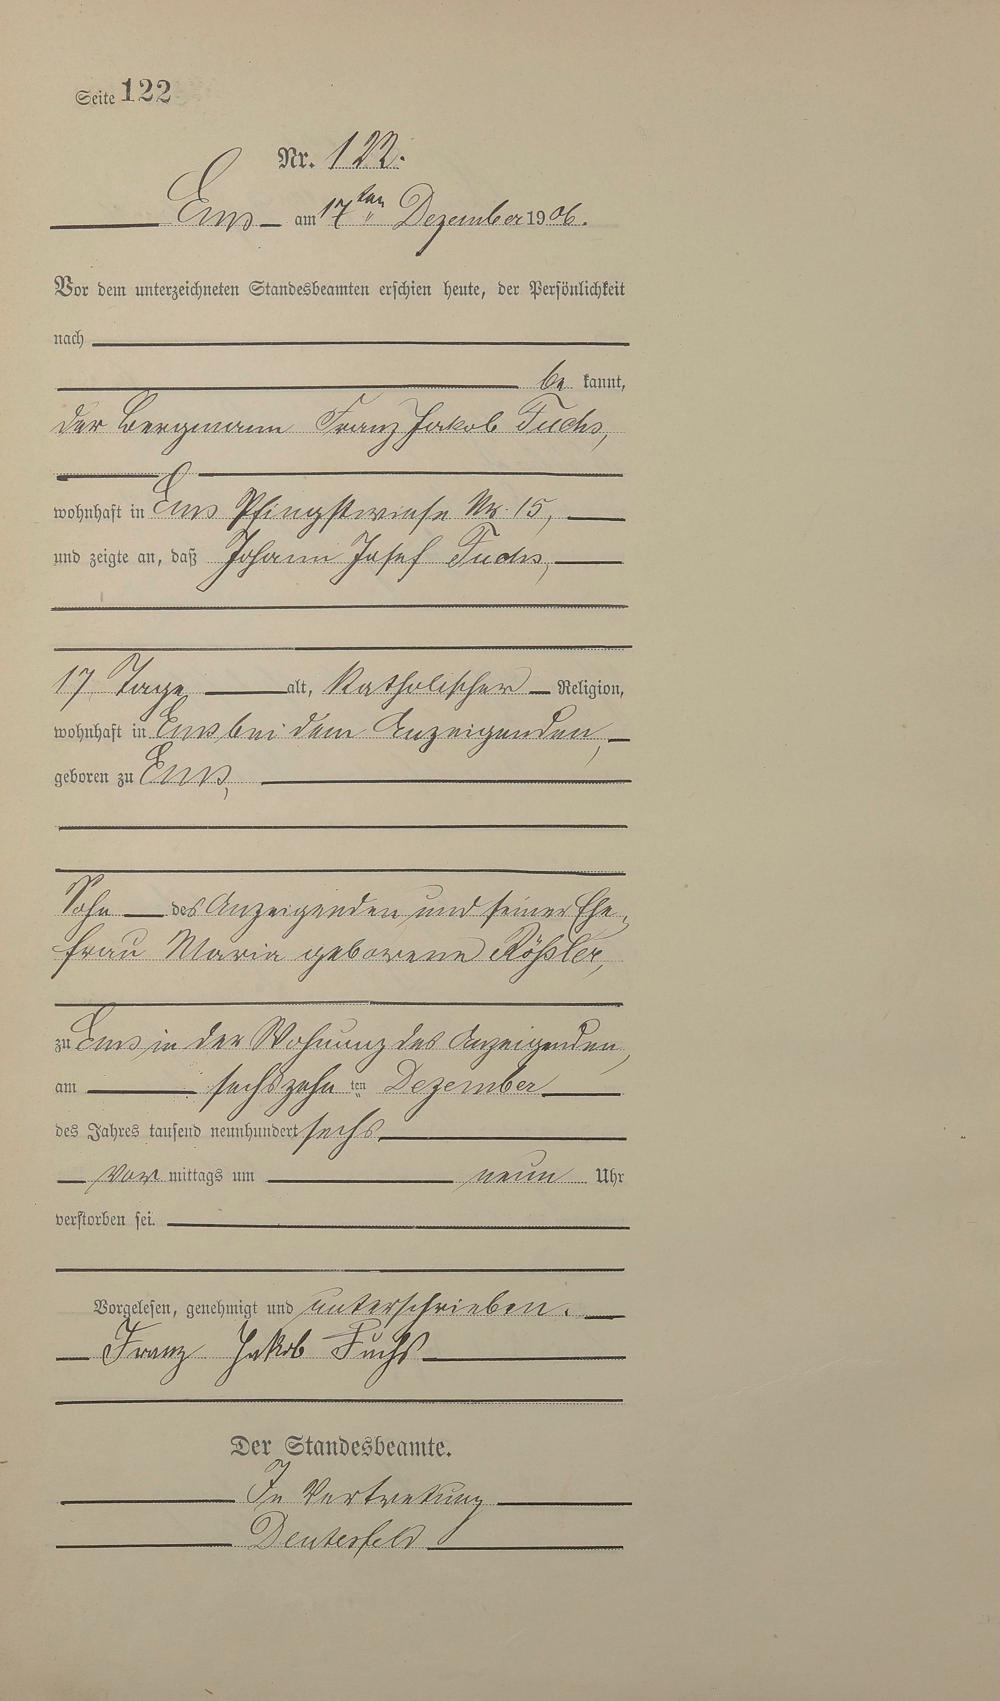 Seite 122
Nr. 122.
Ems am 17ten Dezember 1906.
Vor dem unterzeichneten Standesbeamten erschien heute, der Persönlichkeit
nach
be kannt,
der Bergmann Franz Jakob Fuchs,
wohnhaft in Ems Pfingstwiese Nr. 15,
und zeigte an, daß Johann Josef Fuchs,
17 Tage alt, katholischer Religion,
wohnhaft in Ems bei dem Anzeigenden,
geboren zu Ems,
Sohn des Anzeigenden und seiner Ehe-
frau Maria geborene Rößler,
zu Ems in der Wohnung des Anzeigenden,
am sechszehn ten Dezember
des Jahres tausend neunhundert sechs
vor mittags um neun Uhr
verstorben sei.
Vorgelesen, genehmigt und unterschrieben.
Franz Jakob Fuchs
Der Standesbeamte.
In Vertretung